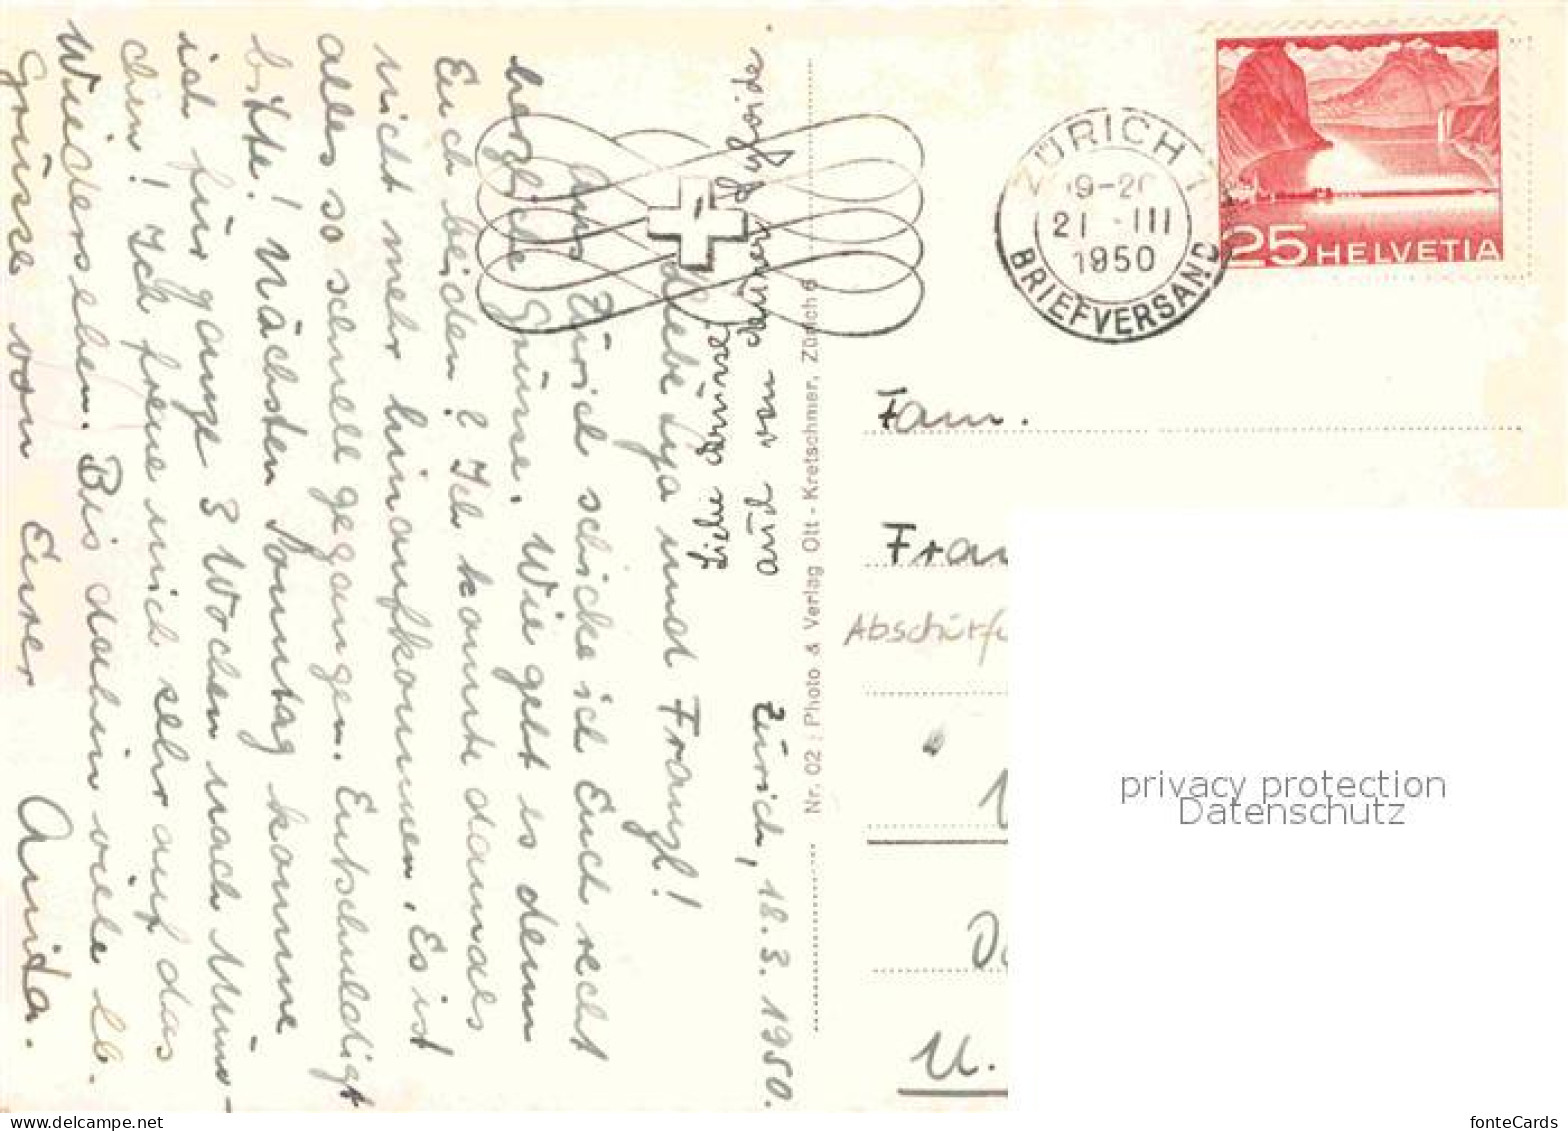 Zürich, 18.3.1950.
Liebe Lya und Franzl!
Aus Zürich schicke ich Euch recht
herzliche Grüsse. Wie geht es denn
Euch beiden? Ich konnte damals
nicht mehr hinaufkommen. Es ist
alles so schnell gegangen. Entschuldigt
bitte! Nächsten Sonntag komme
ich für ganze 3 Wochen nach Mün-
chen! Ich freue mich sehr auf das
Wiedersehen. Bis dahin viele lb.
Grüsse von Eurer Anita.
Liebe Grüsse
auch von deiner
Nr. 02 : Photo & Verlag Ott - Kretschmer, Zürich 6
ZÜRICH 1
21 - III
1950
BRIEFVERSAND
25 HELVETIA
Fam.
Fran
Abschürfu
U.
privacy protection
Datenschutz
fonteCards